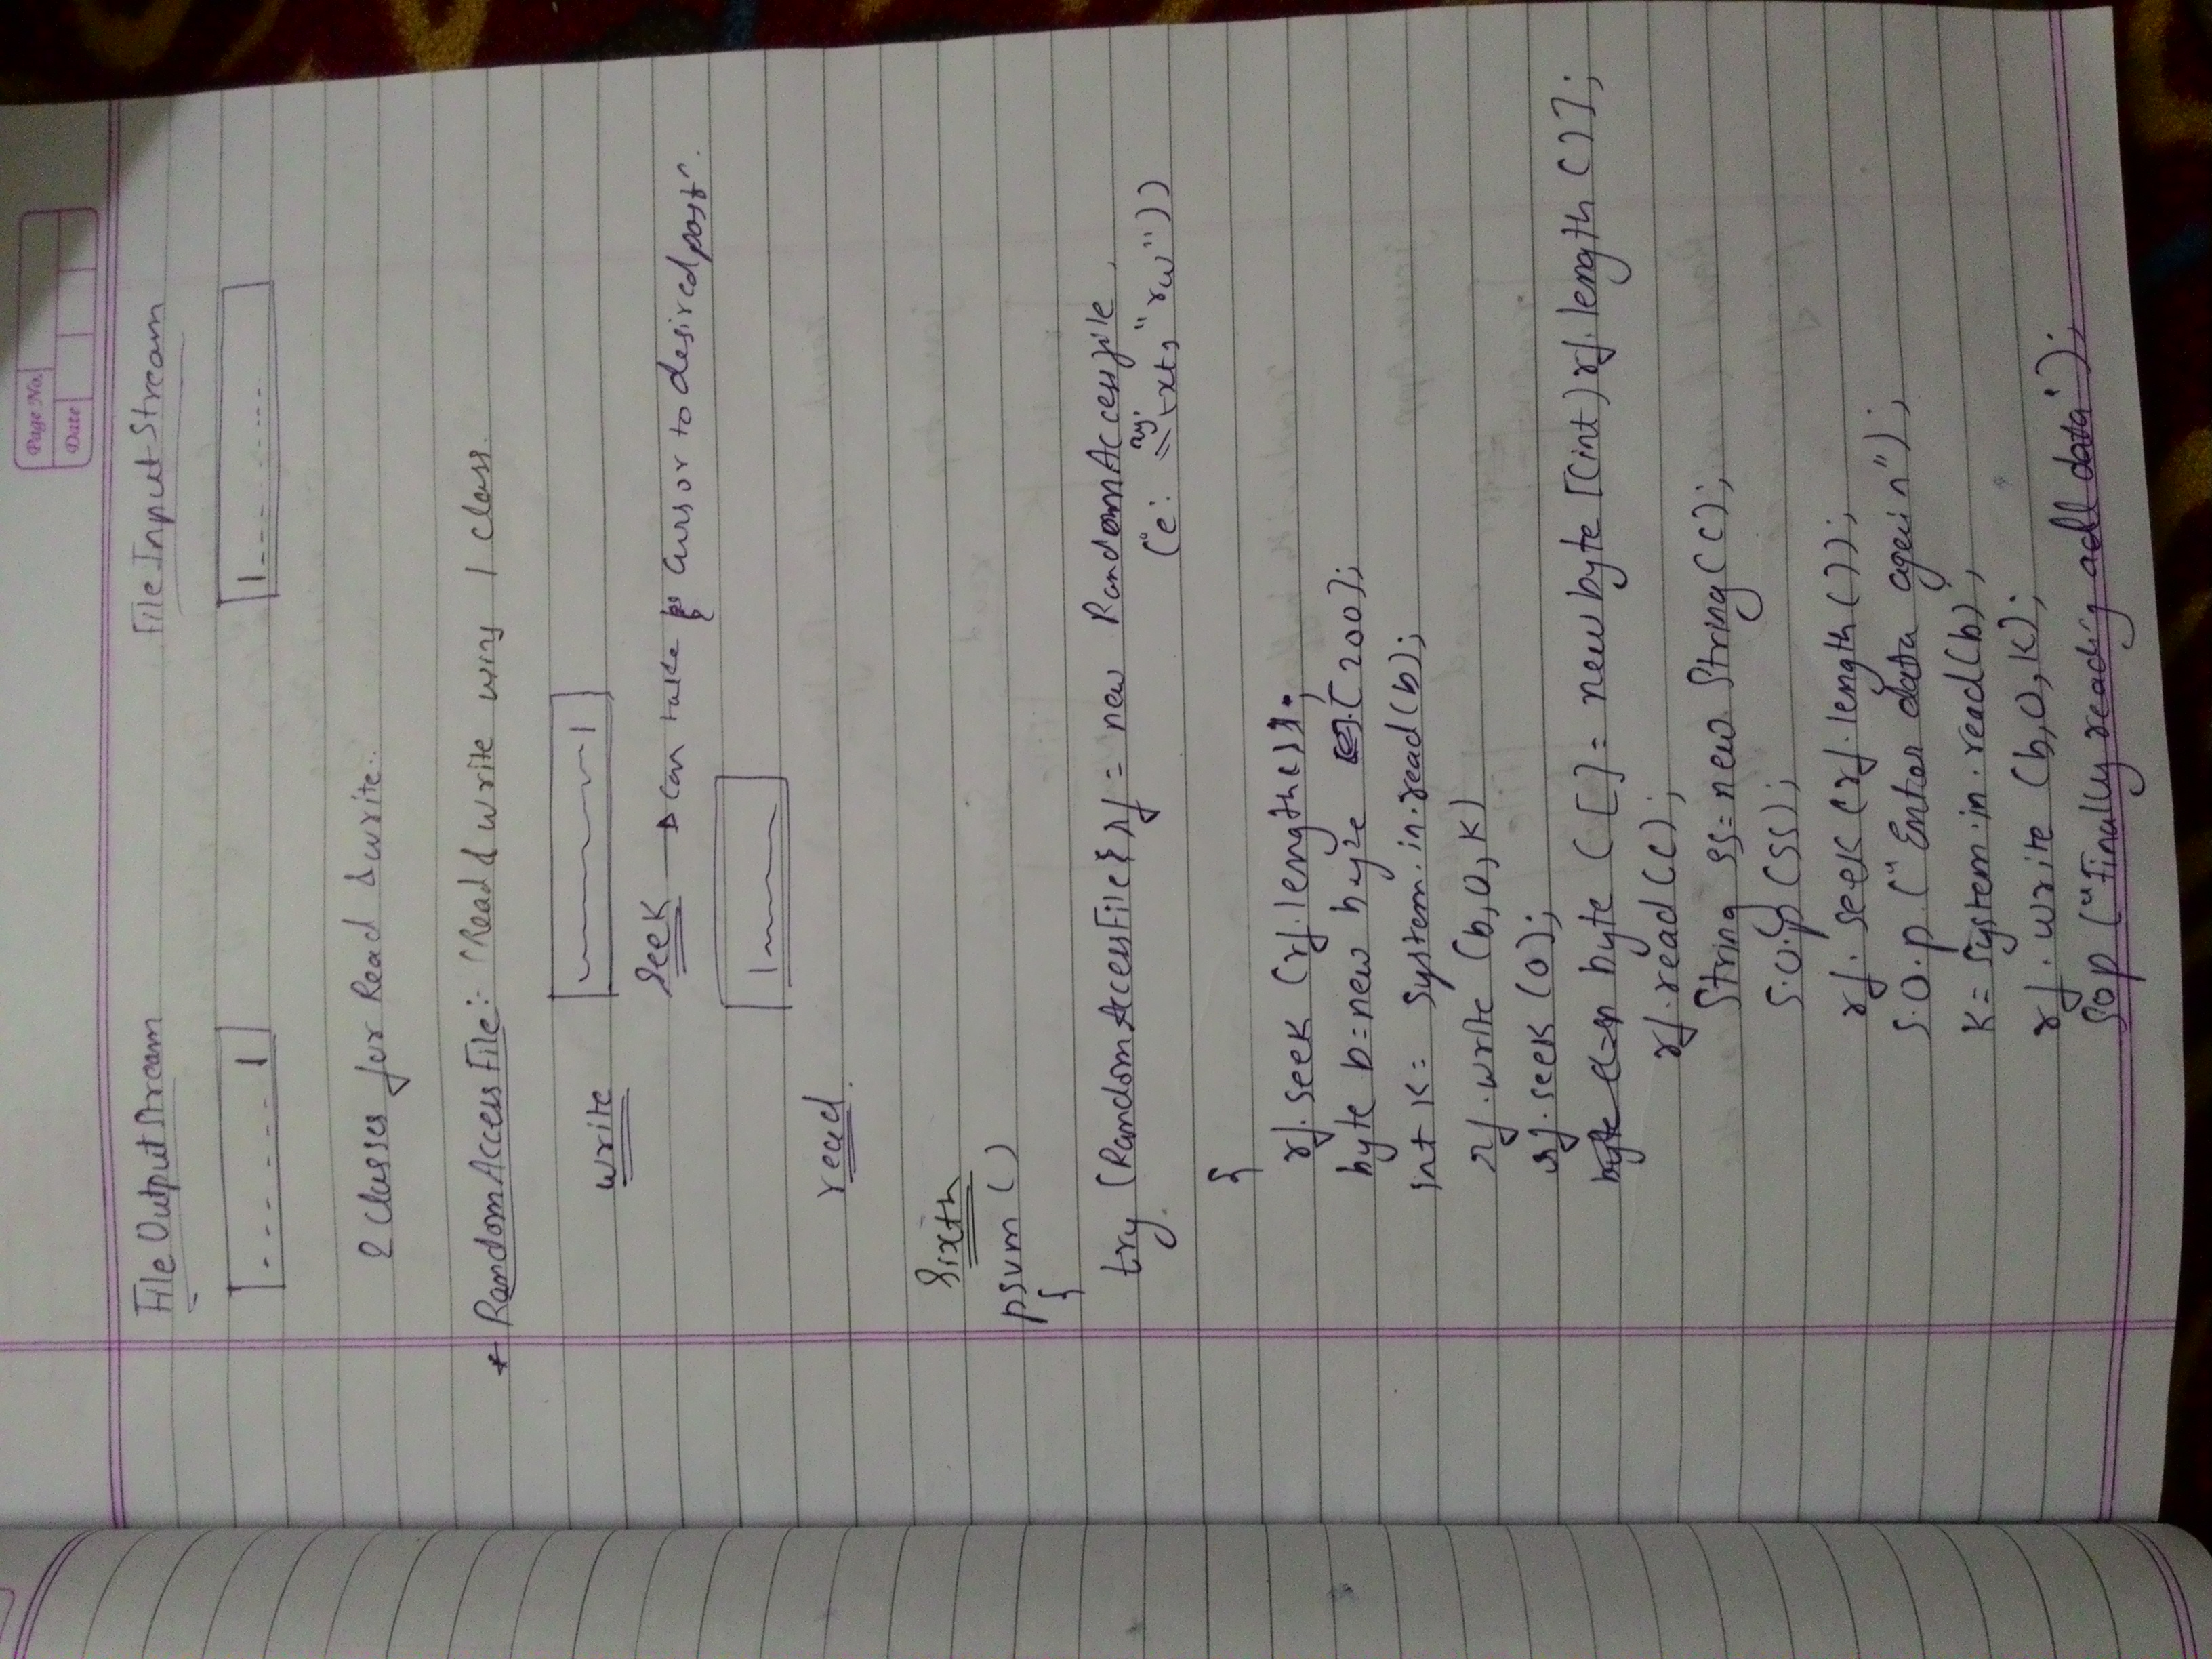 Page No.
Date
File OutputStream File InputStream
2 Classes for Read & write..
* RandomAccessFile:- Read & write 1 class.
write
Seek → can take cursor to desired
read.
Sixth
psvm ()
{
try (RandomAccessFile rf = new RandomAccessfile
("e: \\ .txt, "rw"))
{
rf.seek (rf.length());
byte b=new byte [200];
int K= System.in.read(b);
rf.write (b,0,K)
rf.seek (0);
byte c[]= new byte [(int) rf.length ()];
rf.read(c);
String ss=new String(c);
S.o.p (ss);
rf. seek (rf.length ());
S.o.p. ("Enter data again");
K= System.in.read(b);
rf.write (b,0,K);
Sop ("Finally reading all data");